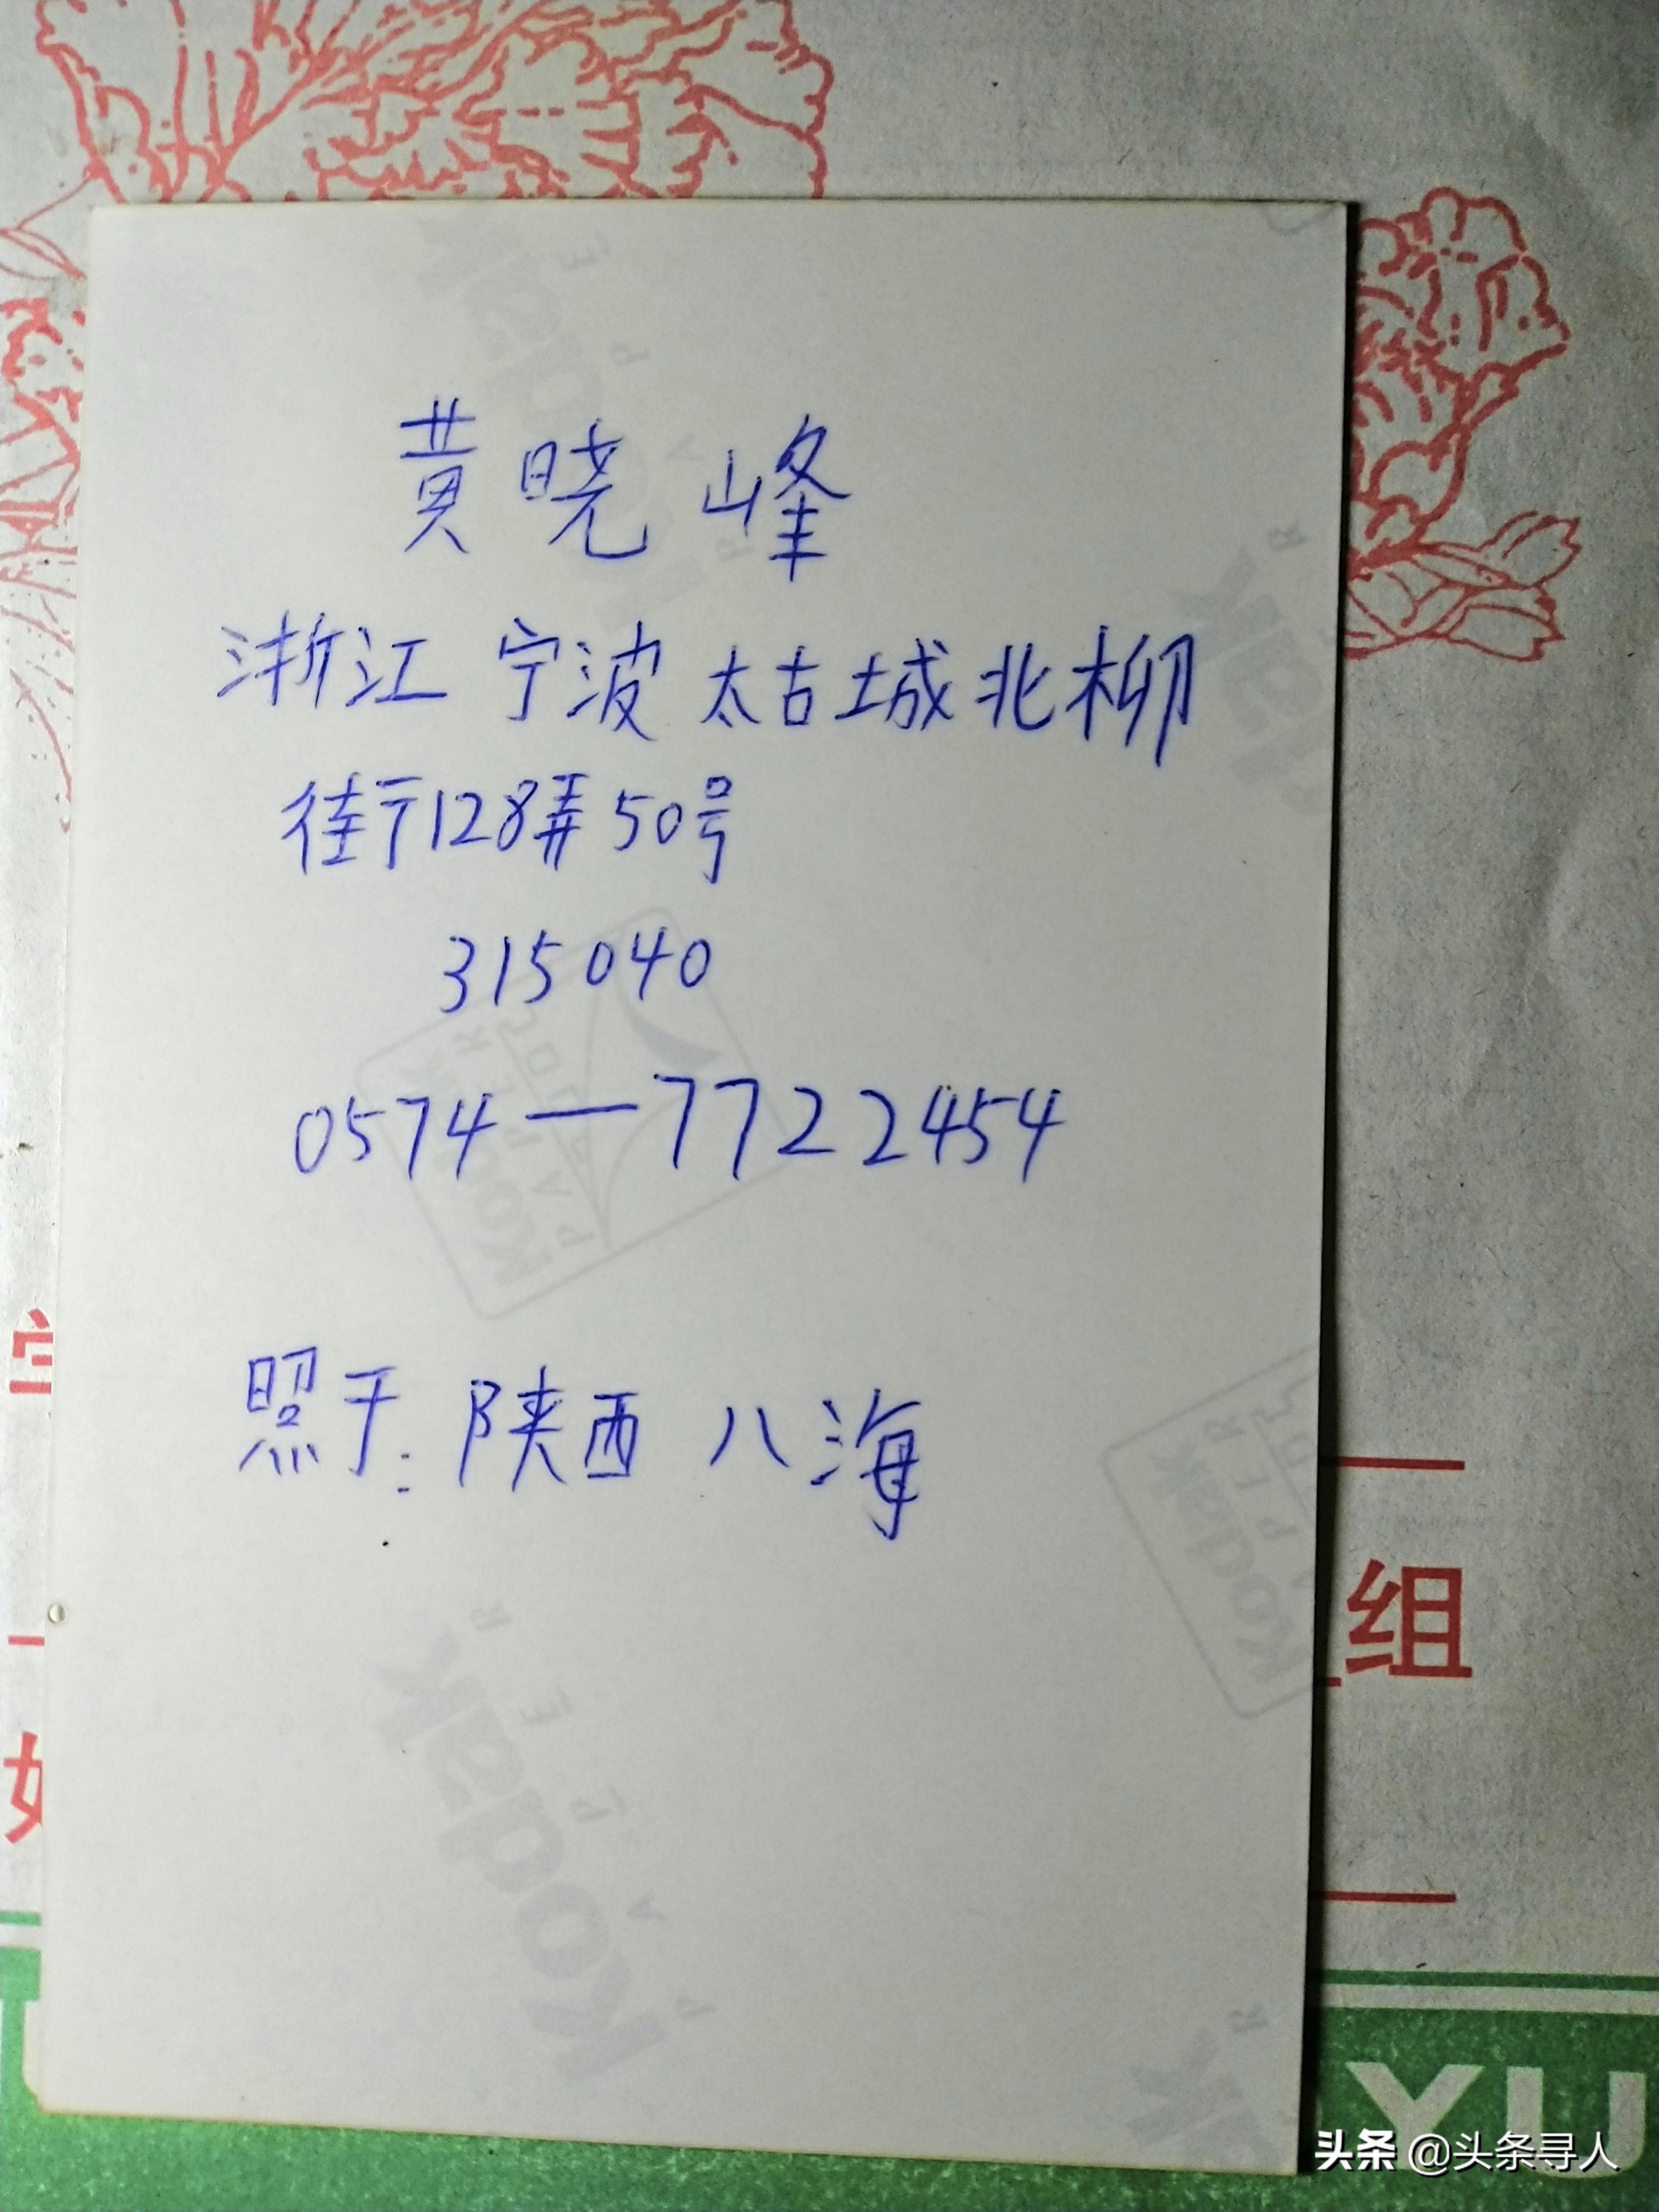 黄晓峰
浙江 宁波 太古城北柳
街128弄50号
315040
0574—7722454
照于: 陕西 八海
组
YU
头条 @头条寻人